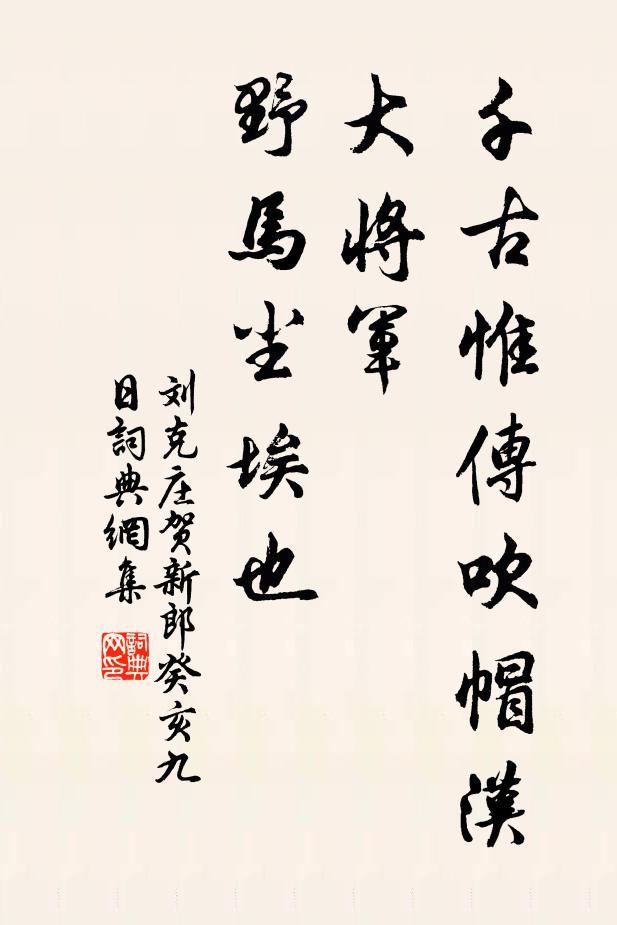 千古惟傳吹帽漢
大將軍
野馬尘埃也
刘克庄贺新郎癸亥九
日詞典網集
詞典
网印